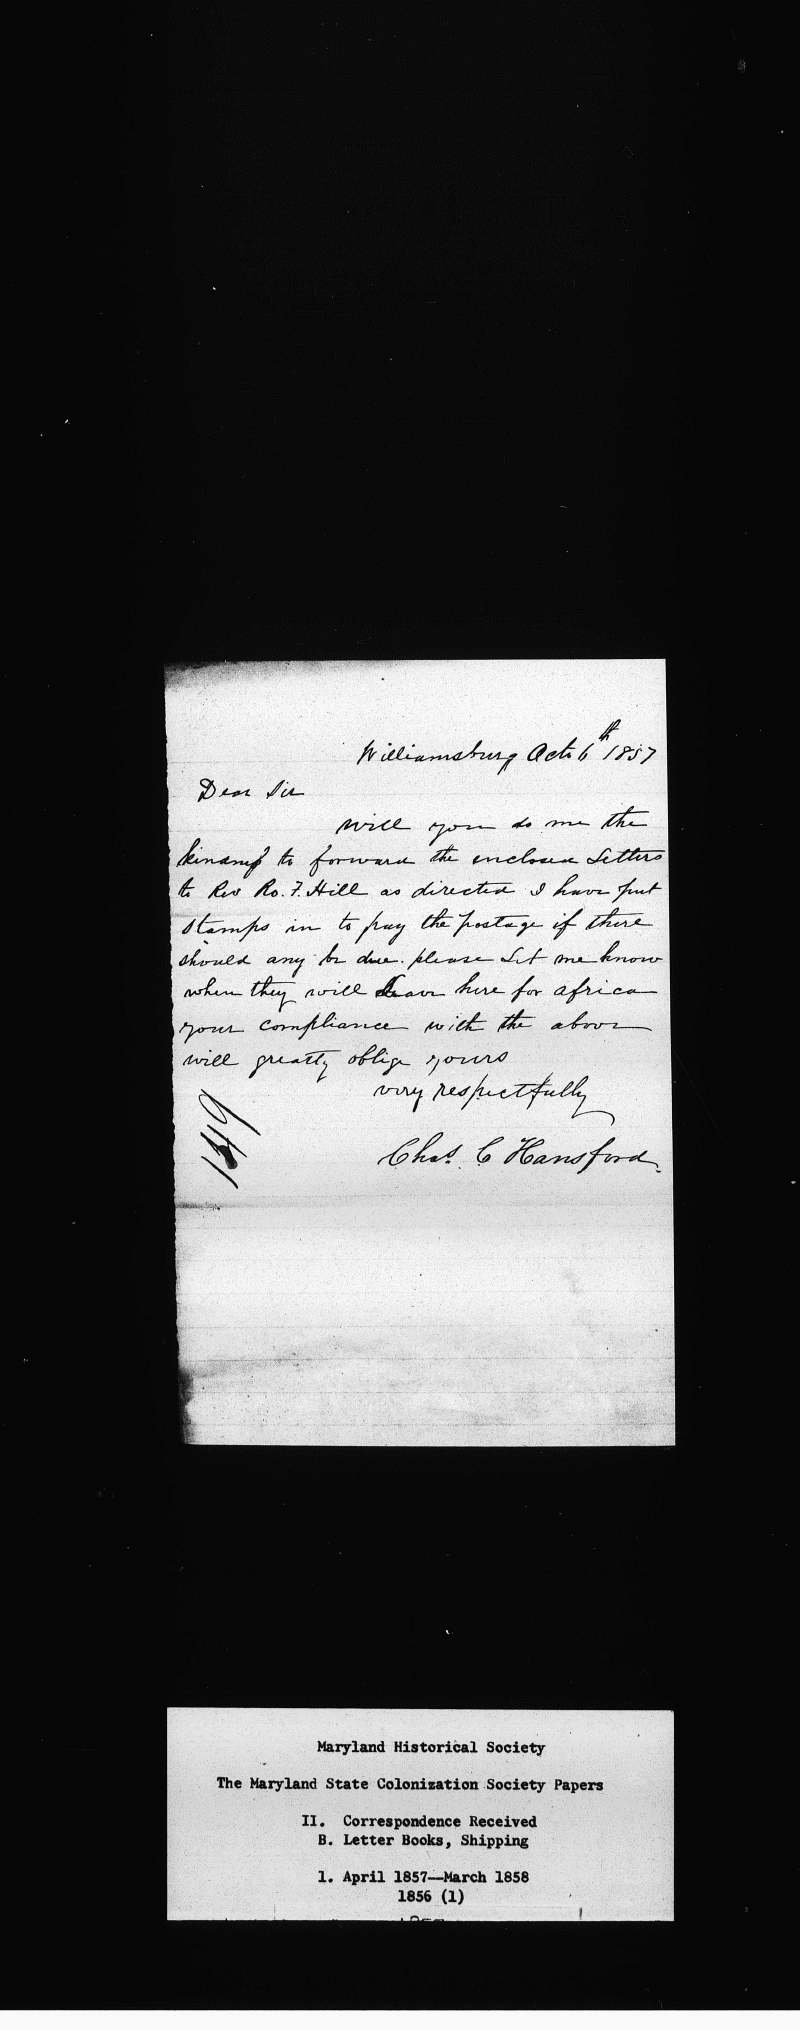 Williamsburg Oct 6th 1857
Dear Sir
will you do me the
to forward the inclosed Letters
to Rev Ro. F. Hill as directed I have put
stamps in to pay the postage if there
should any be due. please Let me know
when they will Leave here for africa
your compliance with the above
will greatly oblige yours
very respectfully
149
Chas. C Hansford.
Maryland Historical Society
The Maryland State Colonization Society Papers
II. Correspondence Received
B. Letter Books, Shipping
1. April 1857--March 1858
1856 (1)